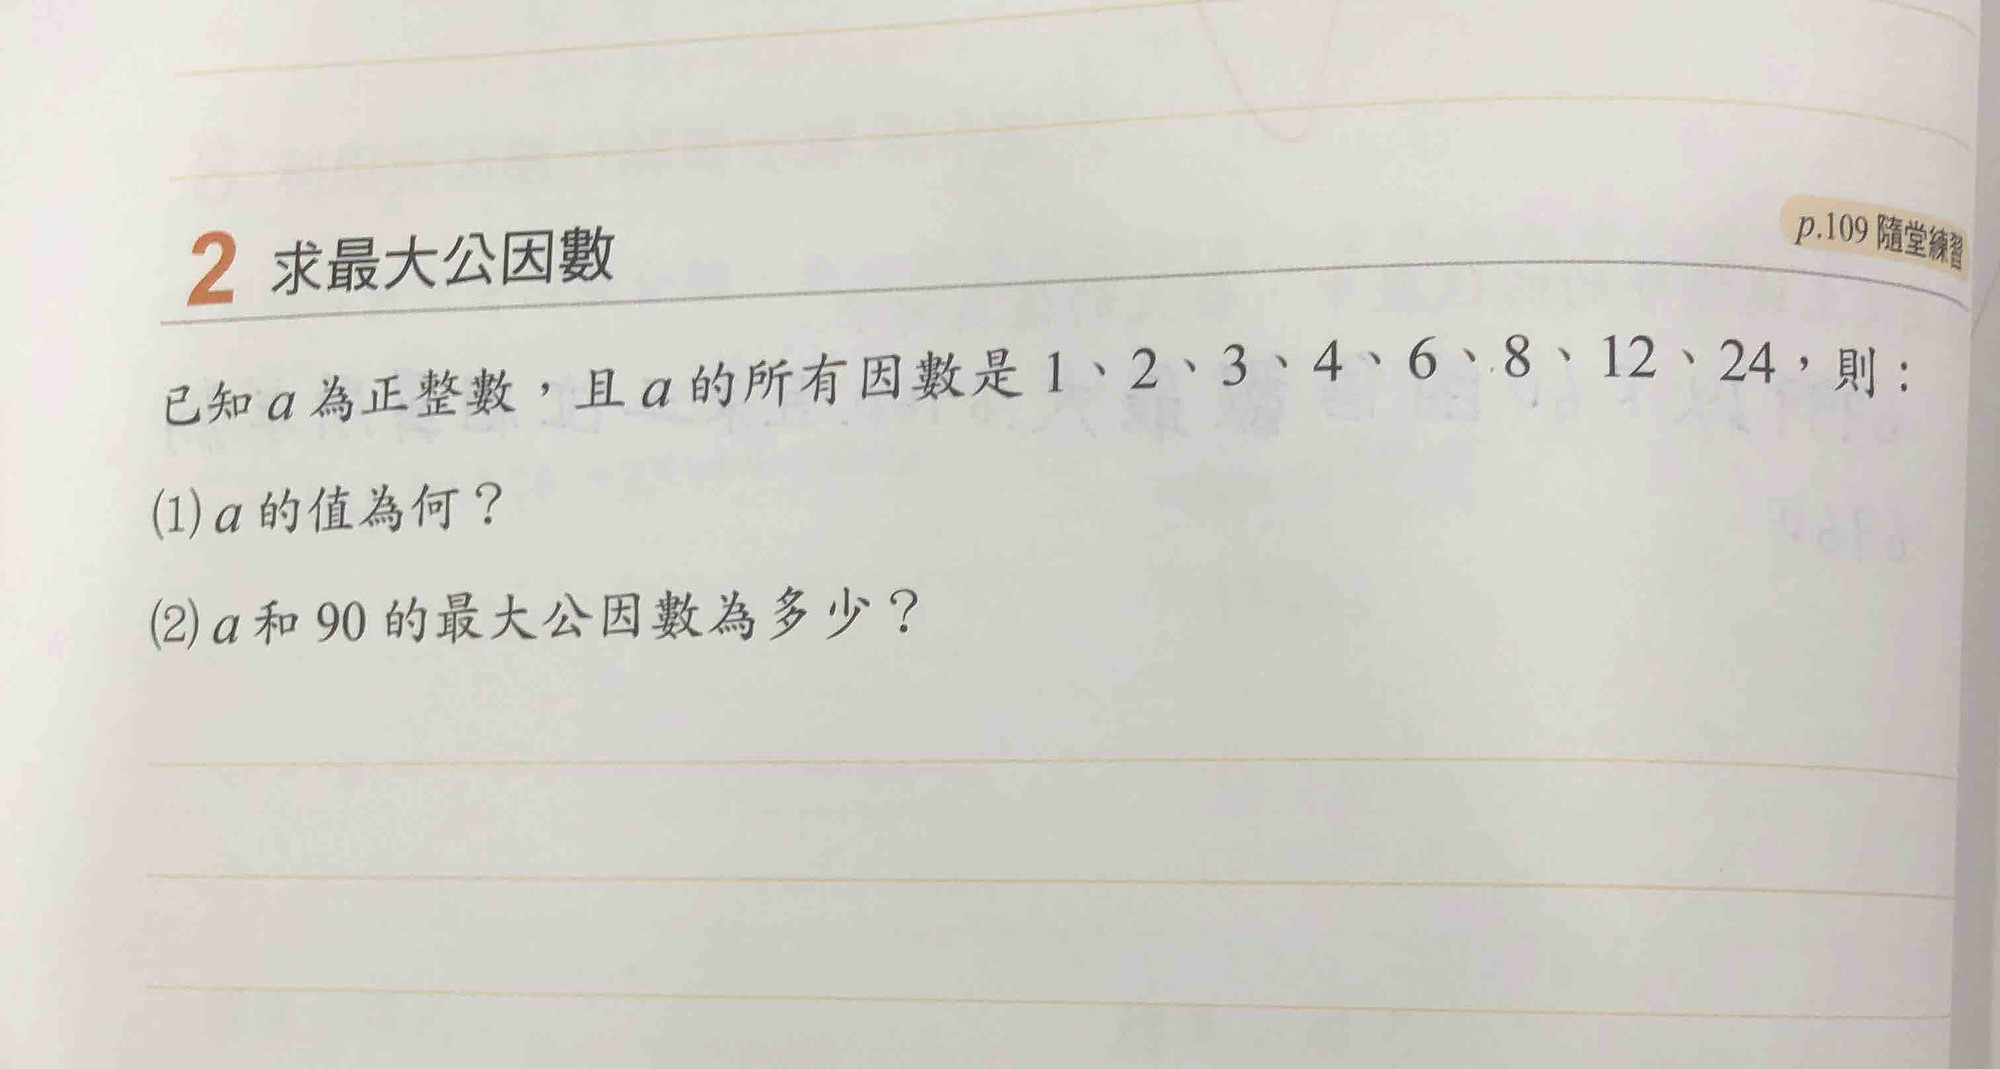 p.109 隨堂練習
2 求最大公因數
已知 a 為正整數，且 a 的所有因數是 1、2、3、4、6、8、12、24，則：
(1) a 的值為何？
(2) a 和 90 的最大公因數為多少？